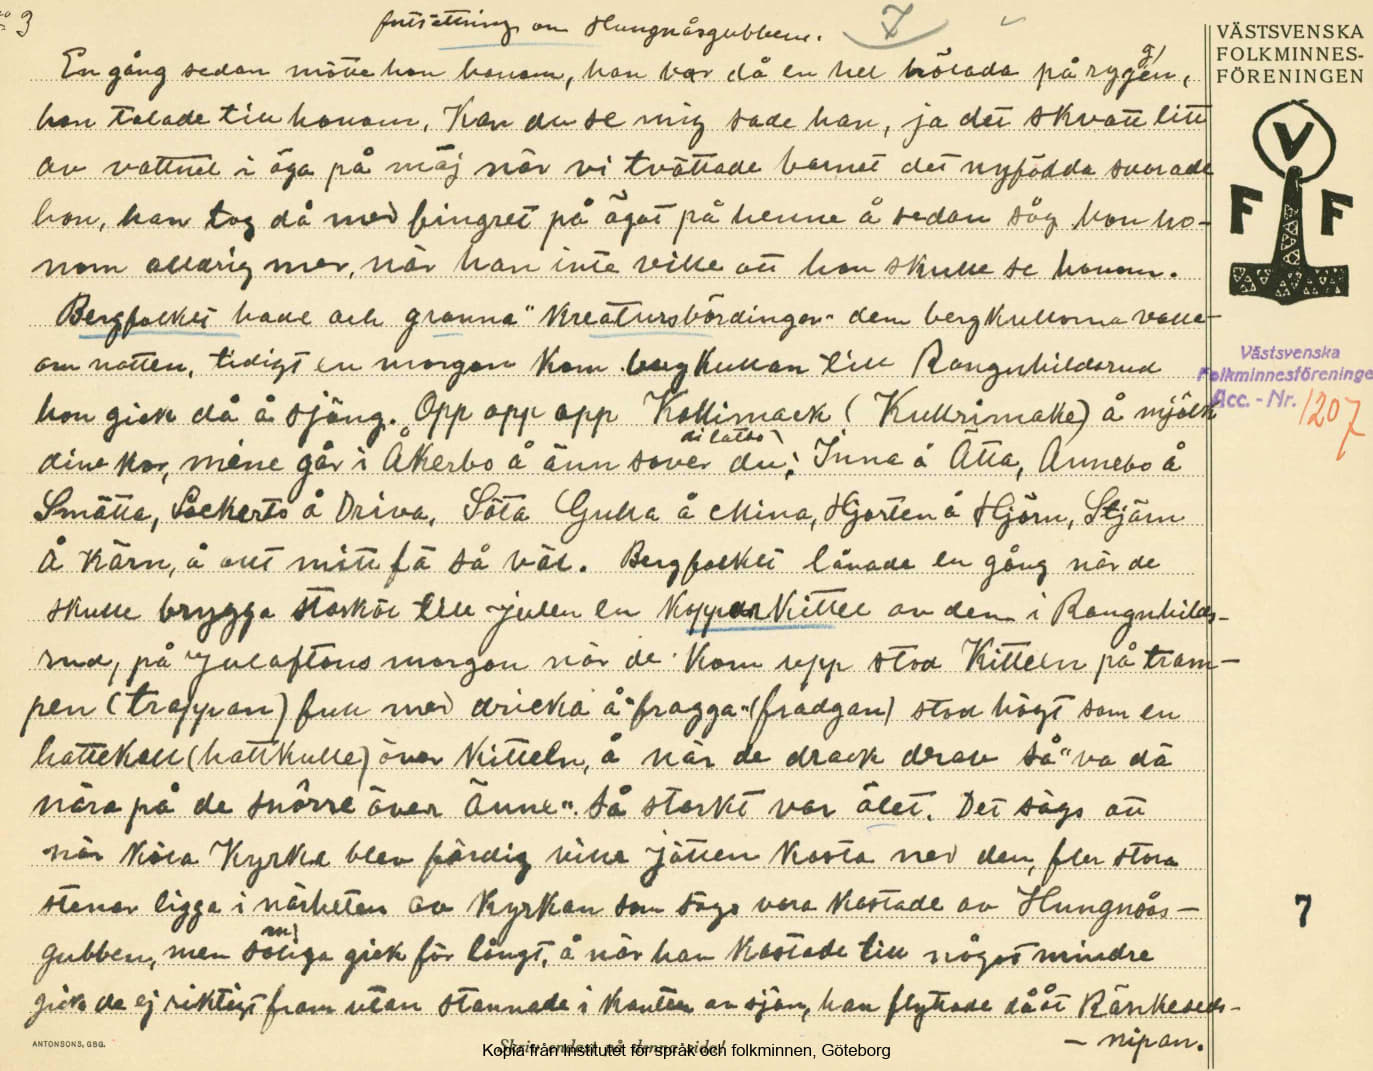 no 3
fortsättning om Hungnåsgubben.
7
En gång sedan mötte hon honom, han bar då en hel hölada på rygen,
g/
hon talade till honom. Kan du se mig sade han, ja det skvatt litt
av vattnet i öga på mäj när vi tvättade barnet det nyfödda svarade
hon, han tog då med fingret på ögat på henne å sedan såg hon ho-
nom alldrig mer, när han inte ville att hon skulle se honom.
Bergfolket hade och granna "Kreatursbördingar" dem bergkullorna valla-
om natten, tidigt en morgon kom bergkullan till Rangnhildsrud
hon gick då å sjöng. Opp opp opp Kollimack (Kullrimake) å mjölk
dine kor, mine går i Åkerbo å änn sover du; Inna å Ätta, Annebo å
Smätta, Sockerto å Driva, Söta Gulla å Mina, Hjorten å Hjörn, Stjärn
Å Kärn, å allt mitt fä så väl. Bergfolket lånade en gång när de
skulle brygga starköl till julen en Kopparkittel av dem i Rangnhilds-
rud, på Julaftons morgon när de kom upp stod Kitteln på tram-
pen (trappan) full med dricka å "fragga" (fradgan) stod högt som en
hattekall (hattkulle) över Kitteln, å när de drack derav så "va dä
nära på de snörre över Änne". Så starkt var ölet. Det sägs att
när Köla Kyrka blev färdig ville jätten Kasta ned den, fler stora
stenar ligga i närheten av Kyrkan som sägs vara Kastade av Hungnäs-
gubben, men somliga gick för långt, å när han Kastade till något mindre
gick de ej riktigt fram utan stannade i Kanten av sjön, han flyttade då åt Ränkeseds-
- nipan.
VÄSTSVENSKA
FOLKMINNES-
FÖRENINGEN
V
F F
Västsvenska
Folkminnesföreningen
Acc. - Nr. 1207
7
ANTONSONS, GBG.
Skriv endast på denna sida!
Kopia från Institutet för språk och folkminnen, Göteborg